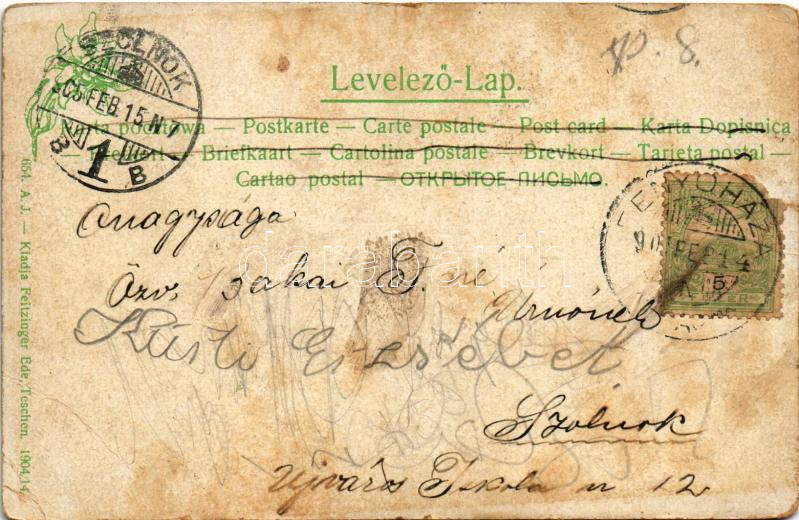 SZOLNOK
905 FEB. 15. N 7
B 1 B
p. 8.
Levelező-Lap.
— Postkarte — Carte postale — Post card — Karta Dopisnica
— Briefkaart — Cartolina postale — Brevkort — Tarjeta postal —
Cartao postal — ОТКРЫТОЕ ПИСЬМО.
FENYŐHÁZA
905 FEB 14
5
Anagysága
Özv. Jakai F. né
Úrnőnek
Küsti Erzsébet
Szolnok
Ujváros Iskola u 12
darabanth
664. A. J. — Kiadja Feitzinger Ede, Teschen. 1904/14.